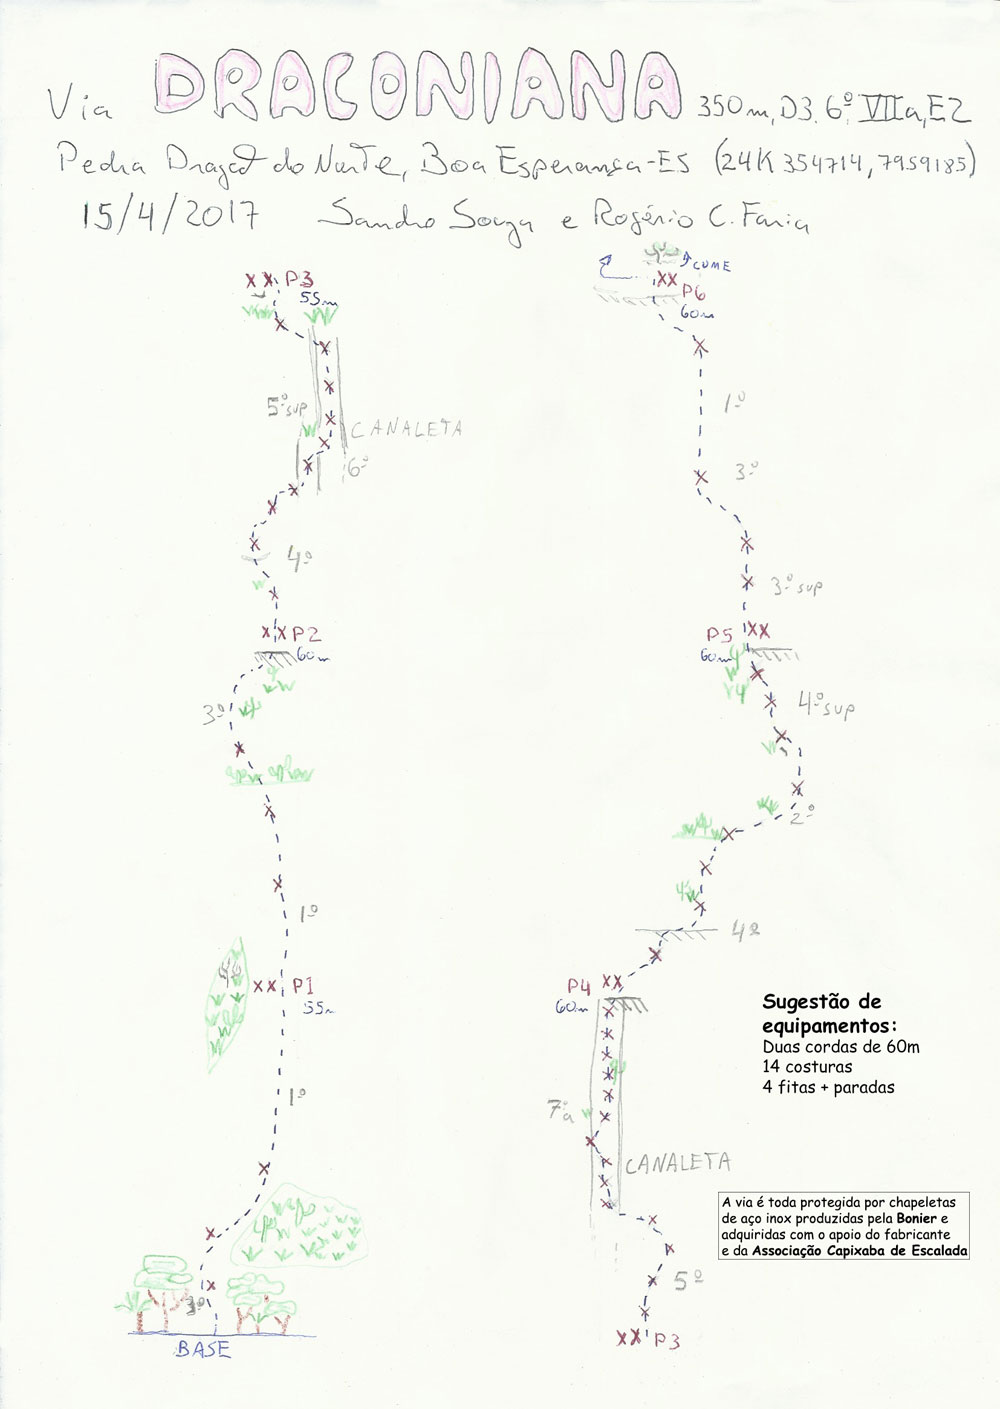 Via DRACONIANA 350m, D3. 6º VIIa, E2
Pedra Dragão do Norte, Boa Esperança-ES (24K 354714, 7959185)
15/4/2017 Sandro Souza e Rogério C. Faria
P3
55m
5ºsup
CANALETA
6º
4º
P2
60m
3º
1º
P1
55m
1º
3º
BASE
CUME
P6
60m
1º
3º
3ºsup
P5
60m
4ºsup
2º
4º
P4
60m
7ºa
CANALETA
5º
P3
Sugestão de
equipamentos:
Duas cordas de 60m
14 costuras
4 fitas + paradas
A via é toda protegida por chapeletas
de aço inox produzidas pela Bonier e
adquiridas com o apoio do fabricante
e da Associação Capixaba de Escalada